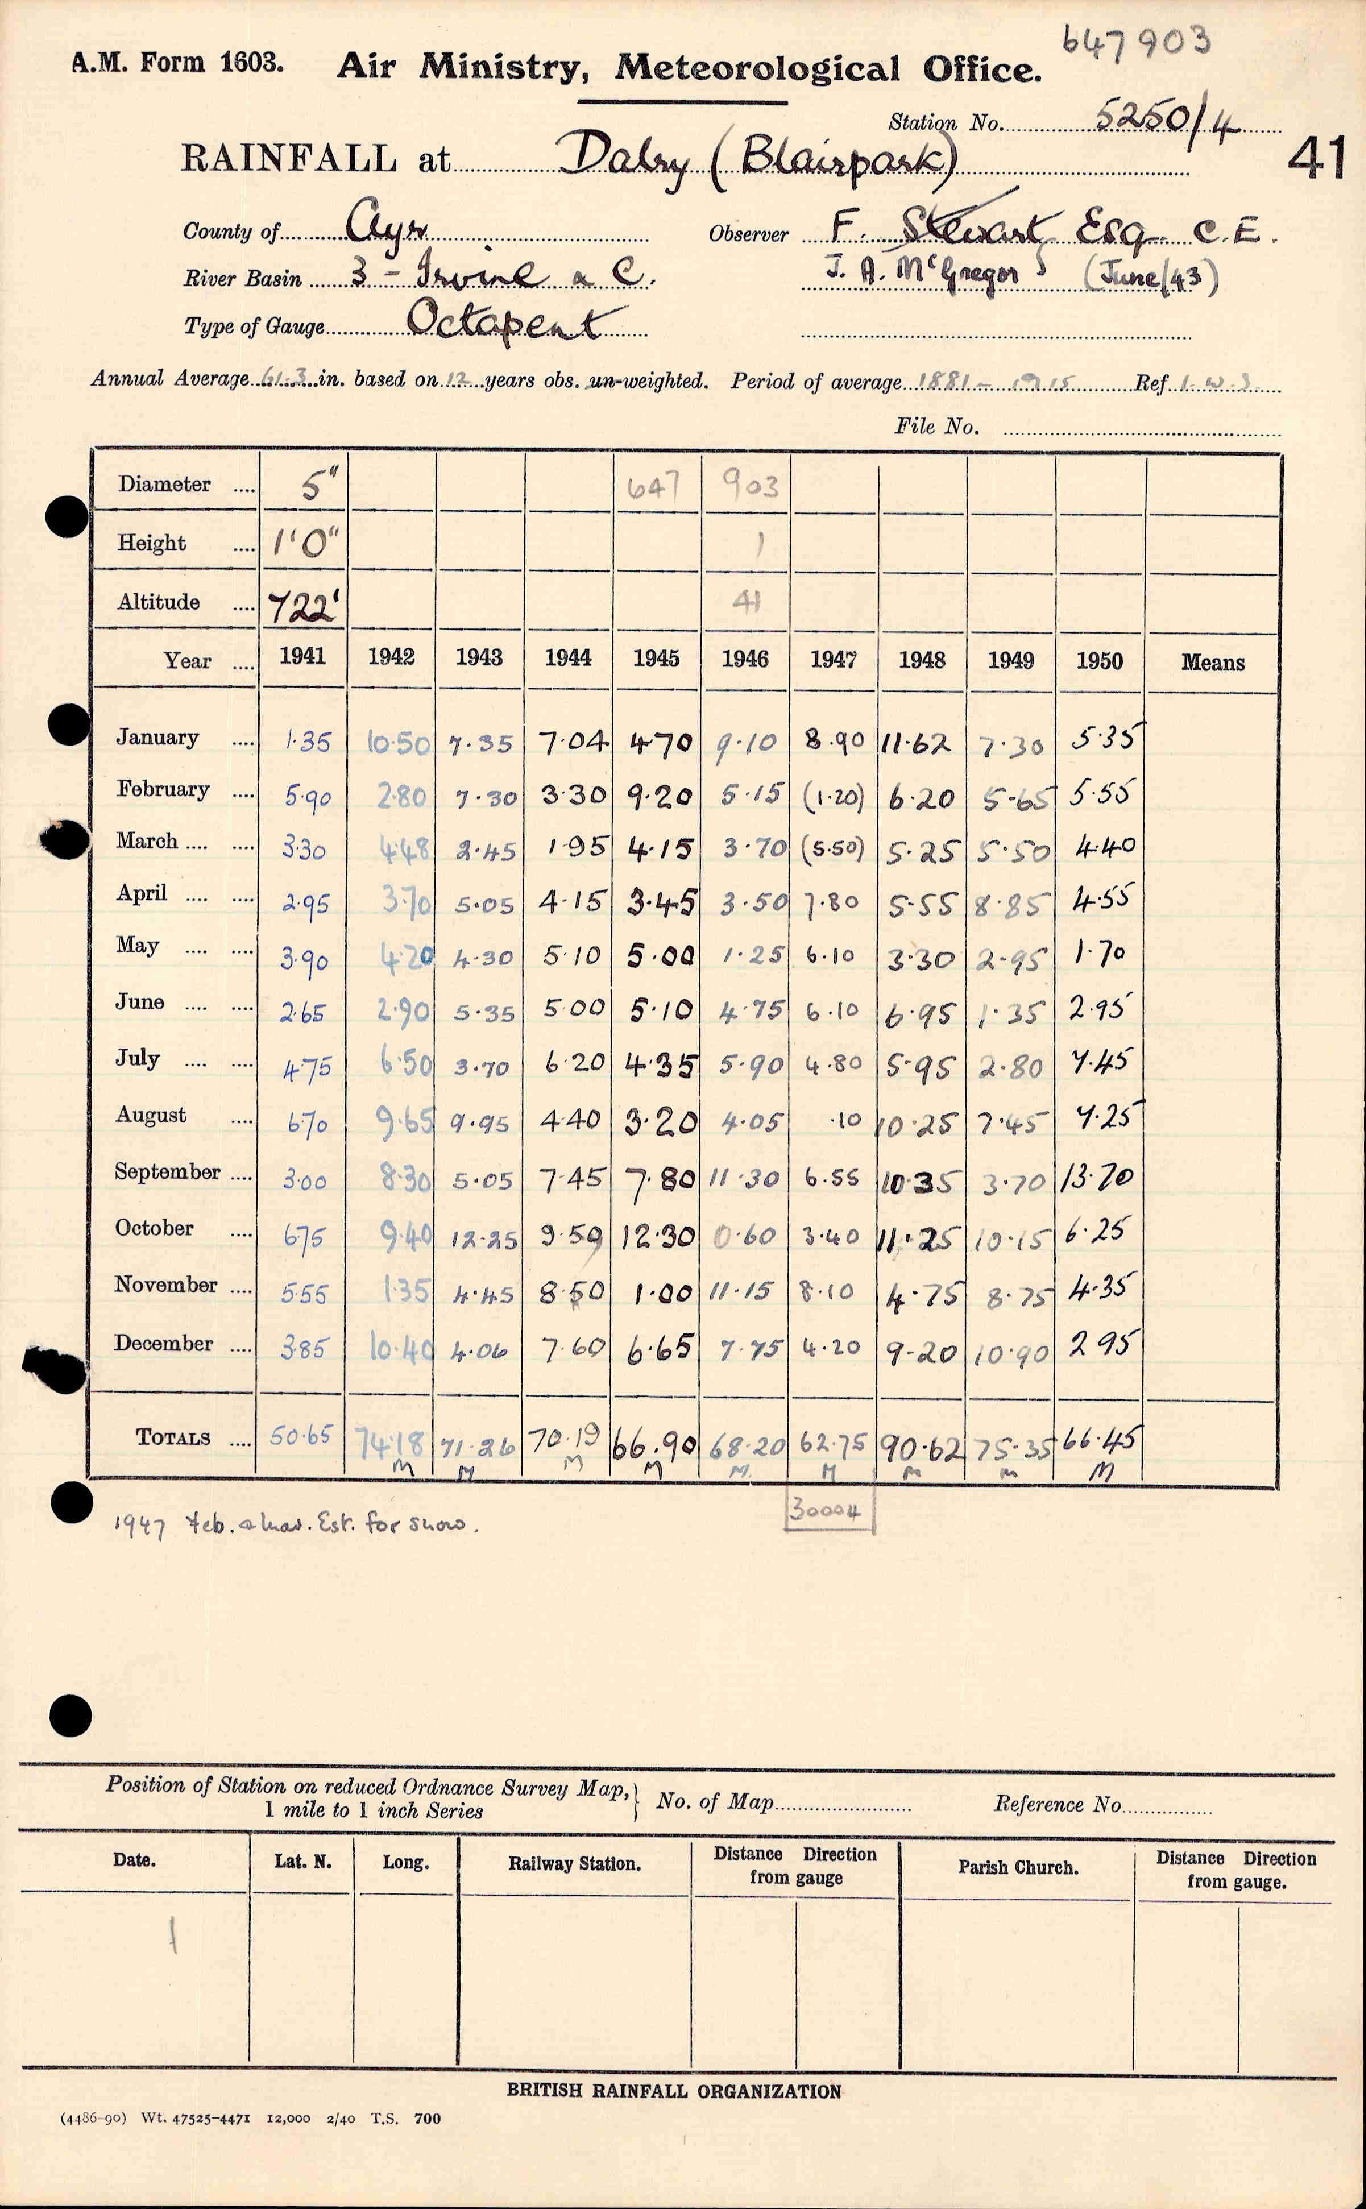 647903
A.M. Form 1603. Air Ministry, Meteorological Office.
Station No. 5250/4
41
RAINFALL at Dalry (Blairpark)
County of Ayr Observer F. Stewart Esq. C.E.
River Basin 3 - Irvine & C. J. A. McGregor (June/43)
Type of Gauge Octapent
Annual Average 61.3 in. based on 12 years obs. un-weighted. Period of average 1881 - 1915 Ref 1. W. 3.
File No.
Diameter .... 5" 647 903
Height .... 1'0" 1
Altitude .... 722' 41
Year .... 1941 1942 1943 1944 1945 1946 1947 1948 1949 1950 Means
January .... 1.35 10.50 7.35 7.04 4.70 9.10 8.90 11.62 7.30 5.35
February .... 5.90 2.80 7.30 3.30 9.20 5.15 (1.20) 6.20 5.65 5.55
March .... .... 3.30 4.48 2.45 1.95 4.15 3.70 (5.50) 5.25 5.50 4.40
April .... .... 2.95 3.70 5.05 4.15 3.45 3.50 7.80 5.55 8.85 4.55
May .... .... 3.90 4.20 4.30 5.10 5.00 1.25 6.10 3.30 2.95 1.70
June .... .... 2.65 2.90 5.35 5.00 5.10 4.75 6.10 6.95 1.35 2.95
July .... .... 4.75 6.50 3.70 6.20 4.35 5.90 4.80 5.95 2.80 7.45
August .... 6.70 9.65 9.95 4.40 3.20 4.05 .10 10.25 7.45 7.25
September .... 3.00 8.30 5.05 7.45 7.80 11.30 6.55 10.35 3.70 13.70
October .... 6.75 9.40 12.25 9.50 12.30 0.60 3.40 11.25 10.15 6.25
November .... 5.55 1.35 4.45 8.50 1.00 11.15 8.10 4.75 8.75 4.35
December .... 3.85 10.40 4.06 7.60 6.65 7.75 4.20 9.20 10.90 2.95
TOTALS .... 50.65 74.18 71.26 70.19 66.90 68.20 62.75 90.62 75.35 66.45
M M M M M M M M M
30004
1947 Feb. & Mar. Est. for snow.
Position of Station on reduced Ordnance Survey Map, } No. of Map Reference No.
1 mile to 1 inch Series
Date. Lat. N. Long. Railway Station. Distance Direction from gauge Parish Church. Distance Direction from gauge.
1
BRITISH RAINFALL ORGANIZATION
(4486-90) Wt. 47525-4471 12,000 2/40 T.S. 700